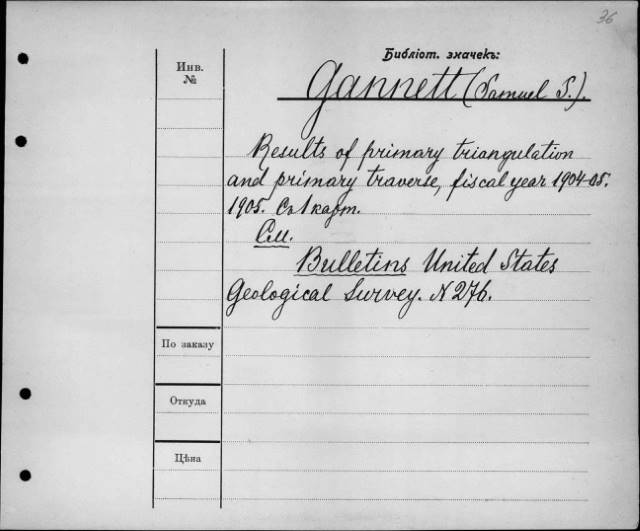 36
Библіот. значекъ:
Инв.
№
Gannett (Samuel S.).
Results of primary triangulation
and primary traverse, fiscal year 1904-05.
1905. Съ 1 карт.
См.
Bulletins United States
Geological Survey. N 276.
По заказу
Откуда
Цѣна